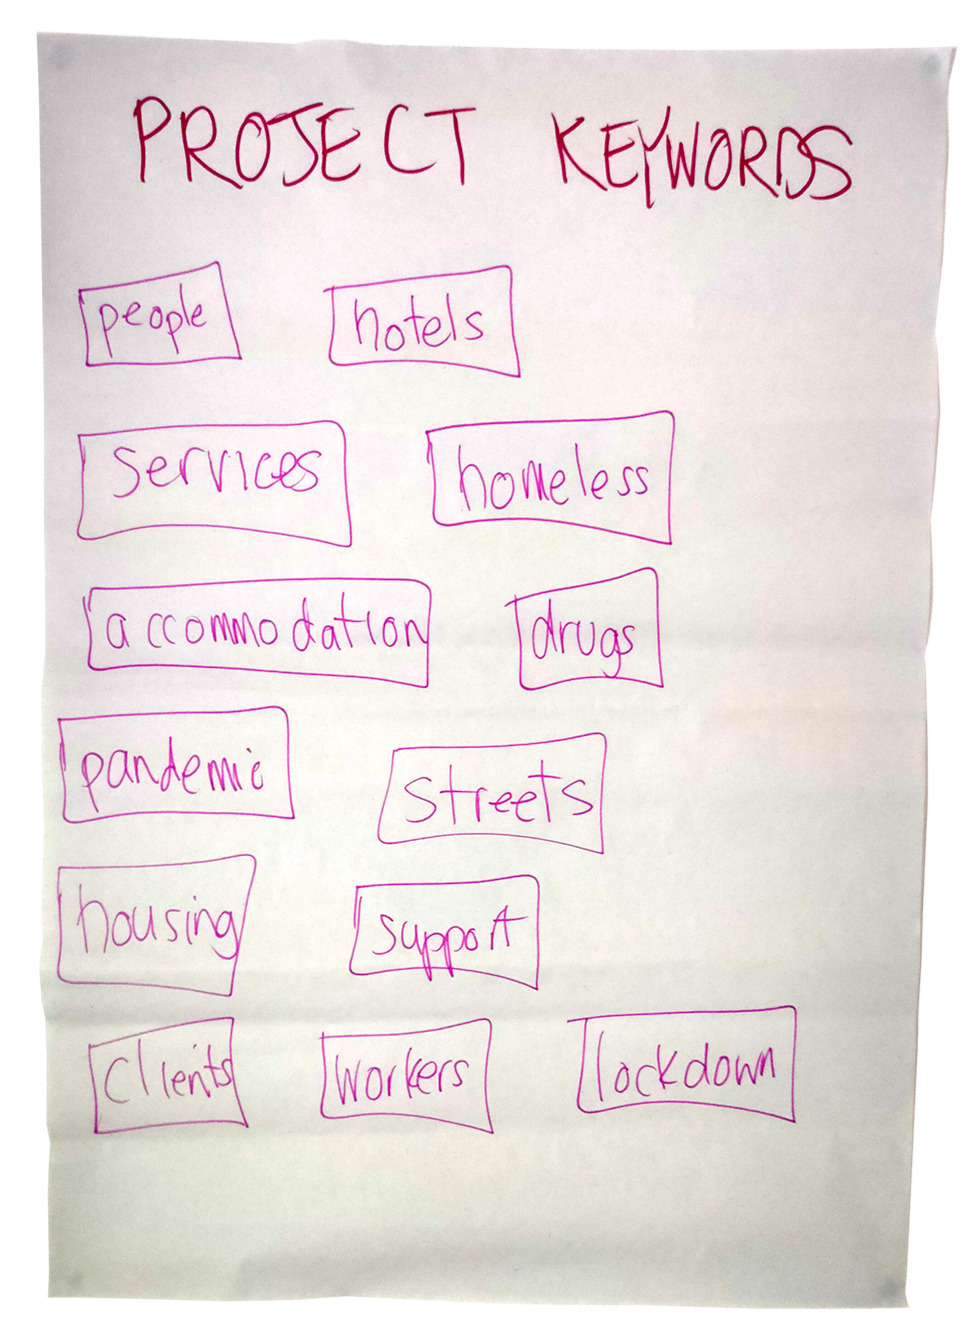 PROJECT KEYWORDS
people hotels
services homeless
accommodation drugs
pandemic streets
housing support
clients workers lockdown